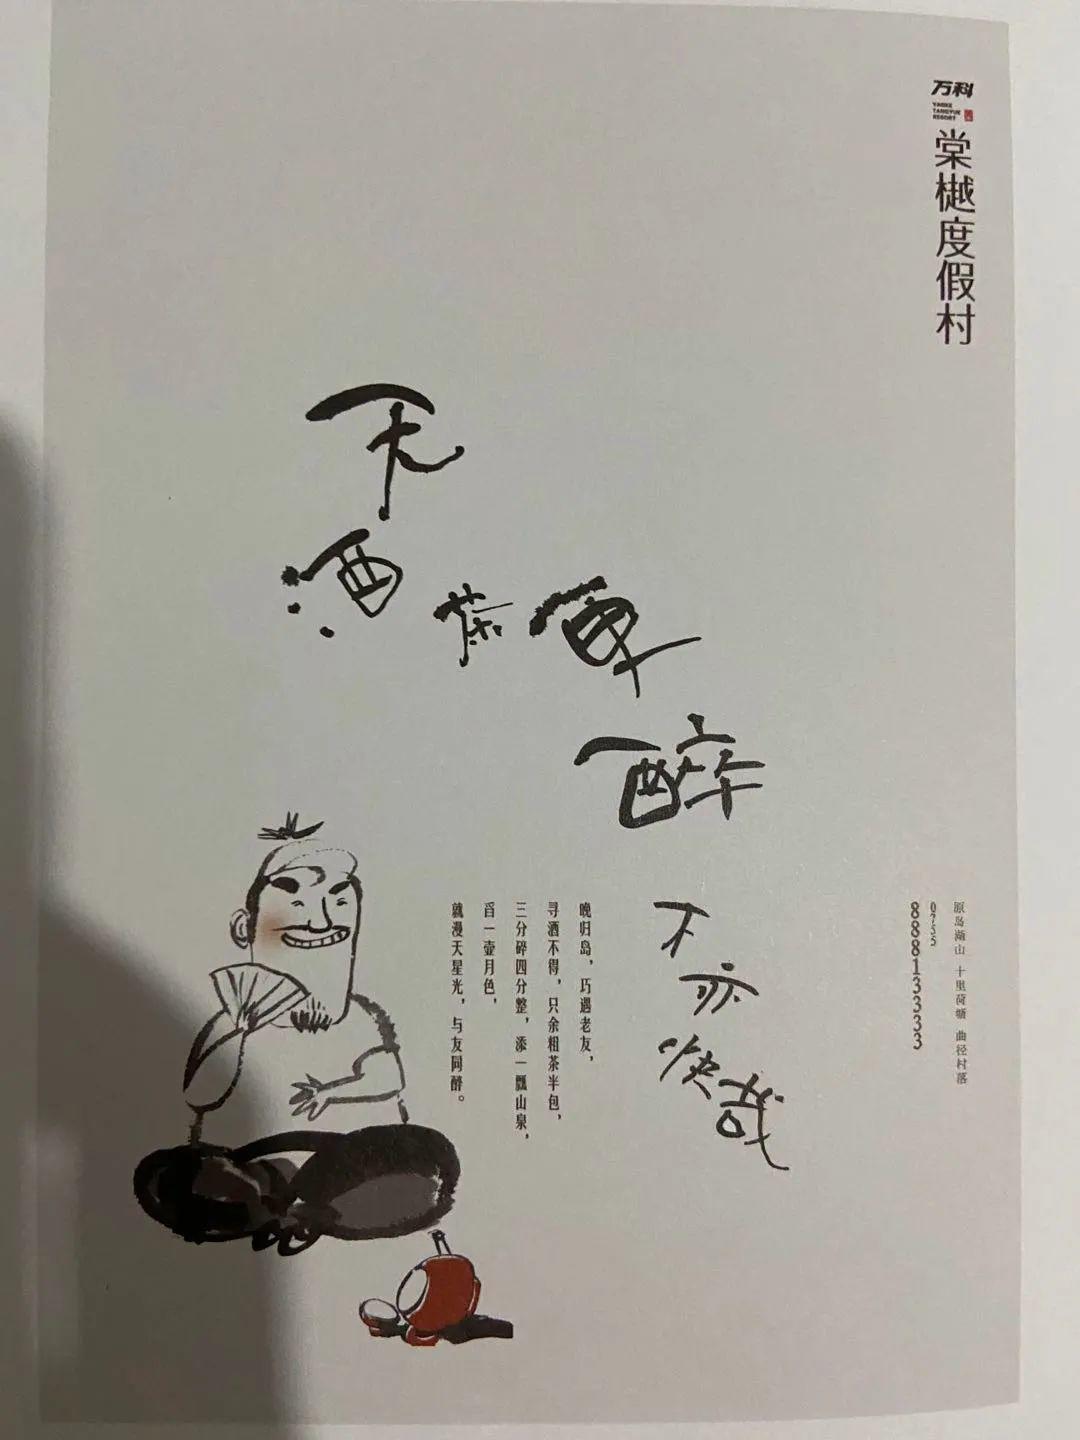 万科
VANKE
TANGYUE
RESORT
棠樾度假村
无
酒茶更
醉
不
亦
快哉
原岛湖山 十里荷塘 曲径村落
0755
88813333
晚归岛，巧遇老友，
寻酒不得，只余粗茶半包，
三分碎四分整，添一瓢山泉，
舀一壶月色，
就漫天星光，与友同醉。